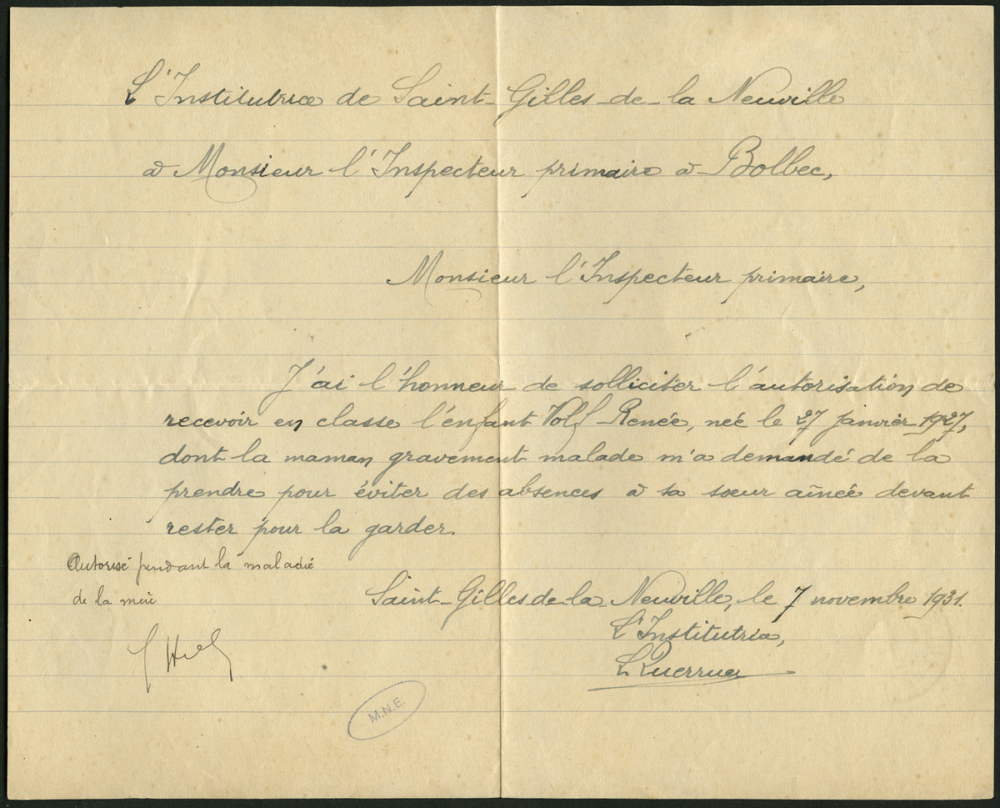 L'Institutrice de Saint-Gilles-de-la Neuville
à Monsieur l'Inspecteur primaire à Bolbec,
Monsieur l'Inspecteur primaire,
J'ai l'honneur de solliciter l'autorisation de
recevoir en classe l'enfant Volf Renée, née le 27 janvier 1927,
dont la maman gravement malade m'a demandé de la
prendre pour éviter des absences à sa soeur aînée devant
rester pour la garder.
Autorisé pendant la maladie
de la mère
Saint-Gilles de la Neuville, le 7 novembre 1931.
L'Institutrice,
M.N.E.